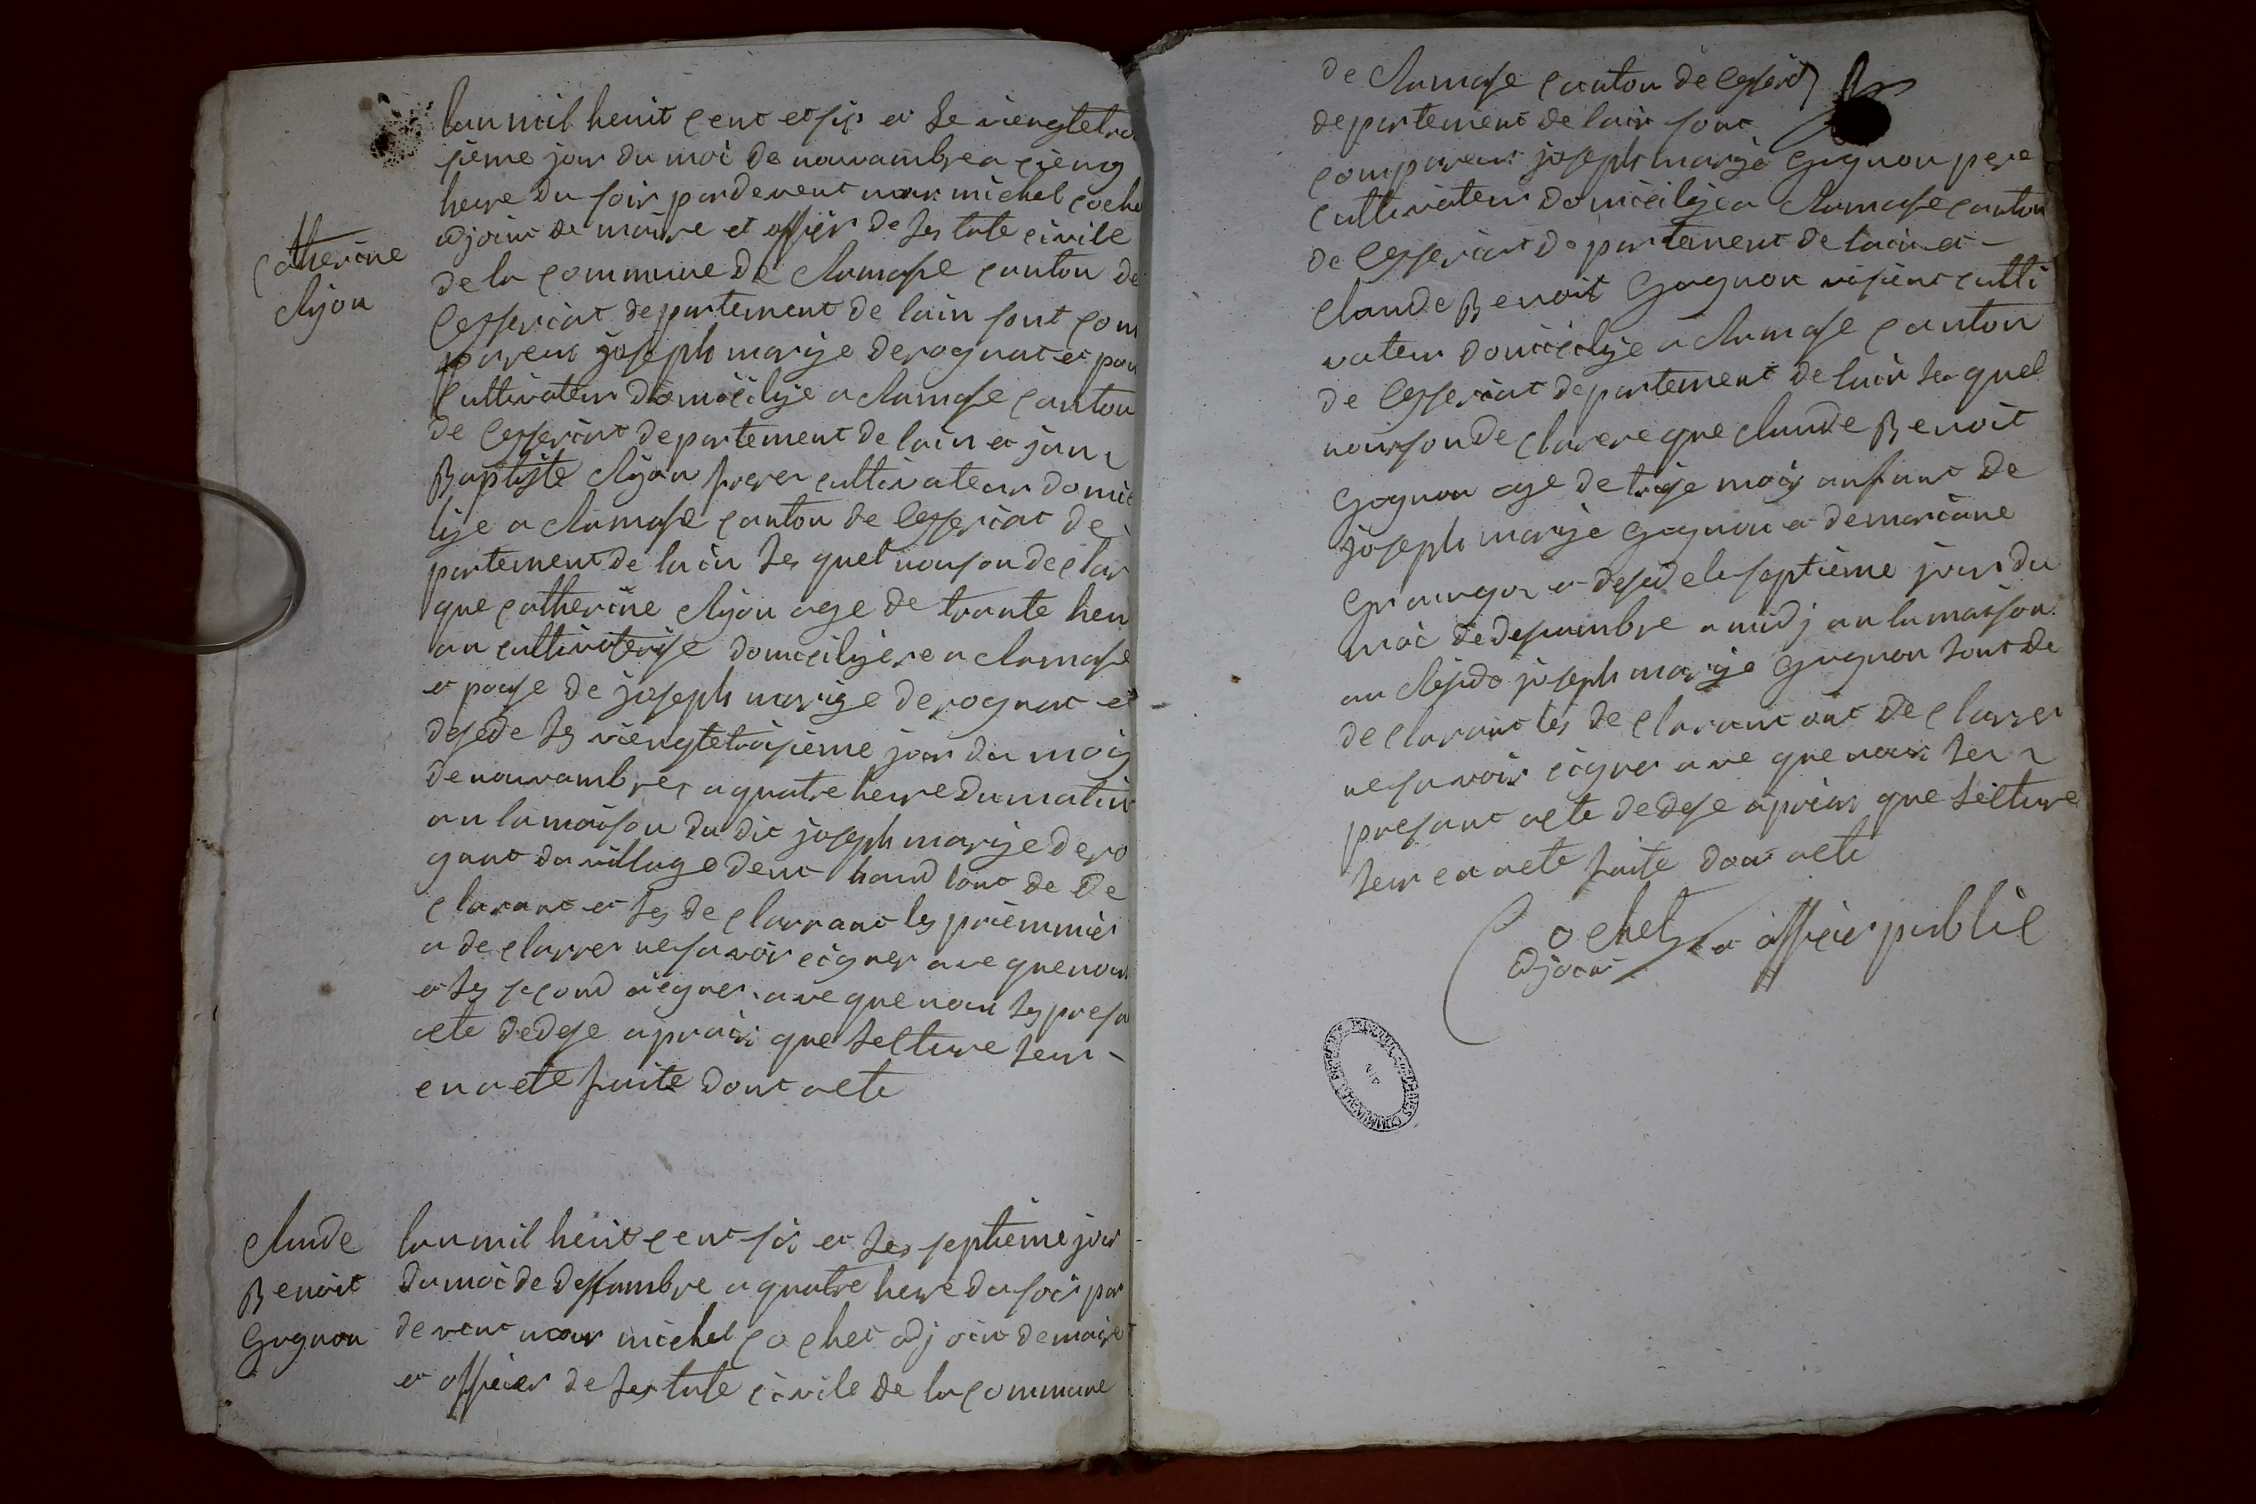 Catherine
Clyon
lan mil heuit cent et six et le viengtetro
sieme jour du moi de nouvambre a cienq
heure du soir pardevent nous michel coche
adjoint de maire et offisier de les tate civile
de la commune de Chamase canton de
Ceyseriat departement de lain sont com
pareut joseph marye derognat et pou
cultivateur domicilye a Chamase canton
de Ceyseriat departement de lain et jan
Baptiste Clyon freres cultivateur domic
lye a Chamase canton de Ceyseriat de
partement de lain les quel nous on declar
que catherine Clyon age de trante heu
an cultivaterise domicilyere a Chamase
et pouse de joseph marye derognat et
desede les viengtetroisieme jour du mois
de nouvambre a quatre heure du matin
an la maison du dit joseph marye dero
gnat du village dent haud tout de de
clarant et les de clarrant les priemmier
a de clarrer ne savoir cigner ave que nous
et les second a cigner ave que nous les presa
acte dedese a prais que lecture leur
en a ete faite dont acte
Claude
Benoit
Gognon
lan mil heuit cent sis et les septieme jour
du moi de dessambre a quatre heure du soir par
devent nous michel Cochet adjoint de maire
et offisier de les tate civile de la commune
de Chamase canton de Ceyseriat
departement de lain sont
compareut joseph marye Gognon pere
cultivateur domicilye a Chamase canton
de Ceyseriat departement de lain et
Claude Benoit Gognon voisient culti
vateur domicilye a Chamase canton
de Ceyseriat departement de lain les quel
nous on declarere que claude Benoit
Gognon age de trise mois anfant de
joseph marye Gognon et de mariane
a desede le septieme jour du
moi de desambre a midj an la maison
au joseph marye Gognon tout de
de clarant les de clarant ont de clarrer
ne savoir cigner ave que nous les
presant acte dedese a prais que lecture
leur en a ete faite dont acte
Cochet
adjoint et offisier public